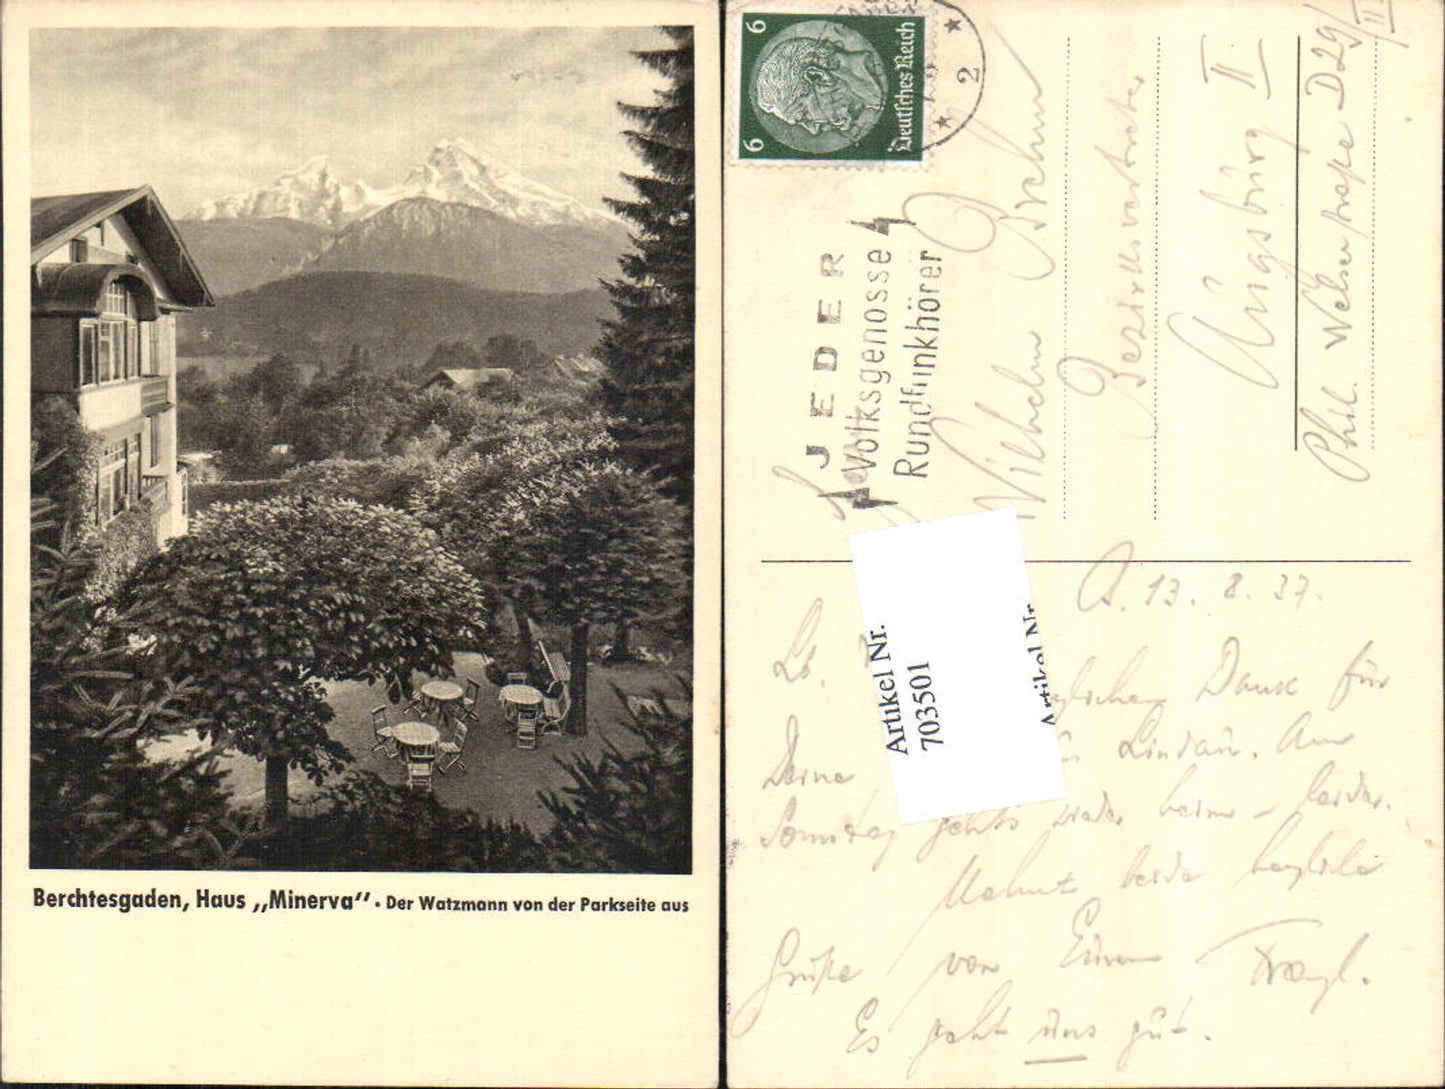 Berchtesgaden, Haus „Minerva“ • Der Watzmann von der Parkseite aus
6 6
Deutsches Reich
2
JEDER
Volksgenosse
Rundfunkhörer
Wilhelm
Bezirksvertreter
Augsburg II
Phil. Welserstraße D 29/II
Artikel Nr.
703501
Artikel Nr.
13. 8. 37.
Lb.
Dank für
Deine Lindau. Am
Sonntag gehts wieder heim – leider.
Nehmt beide herzliche
Grüße von Eurem
Es geht uns gut.